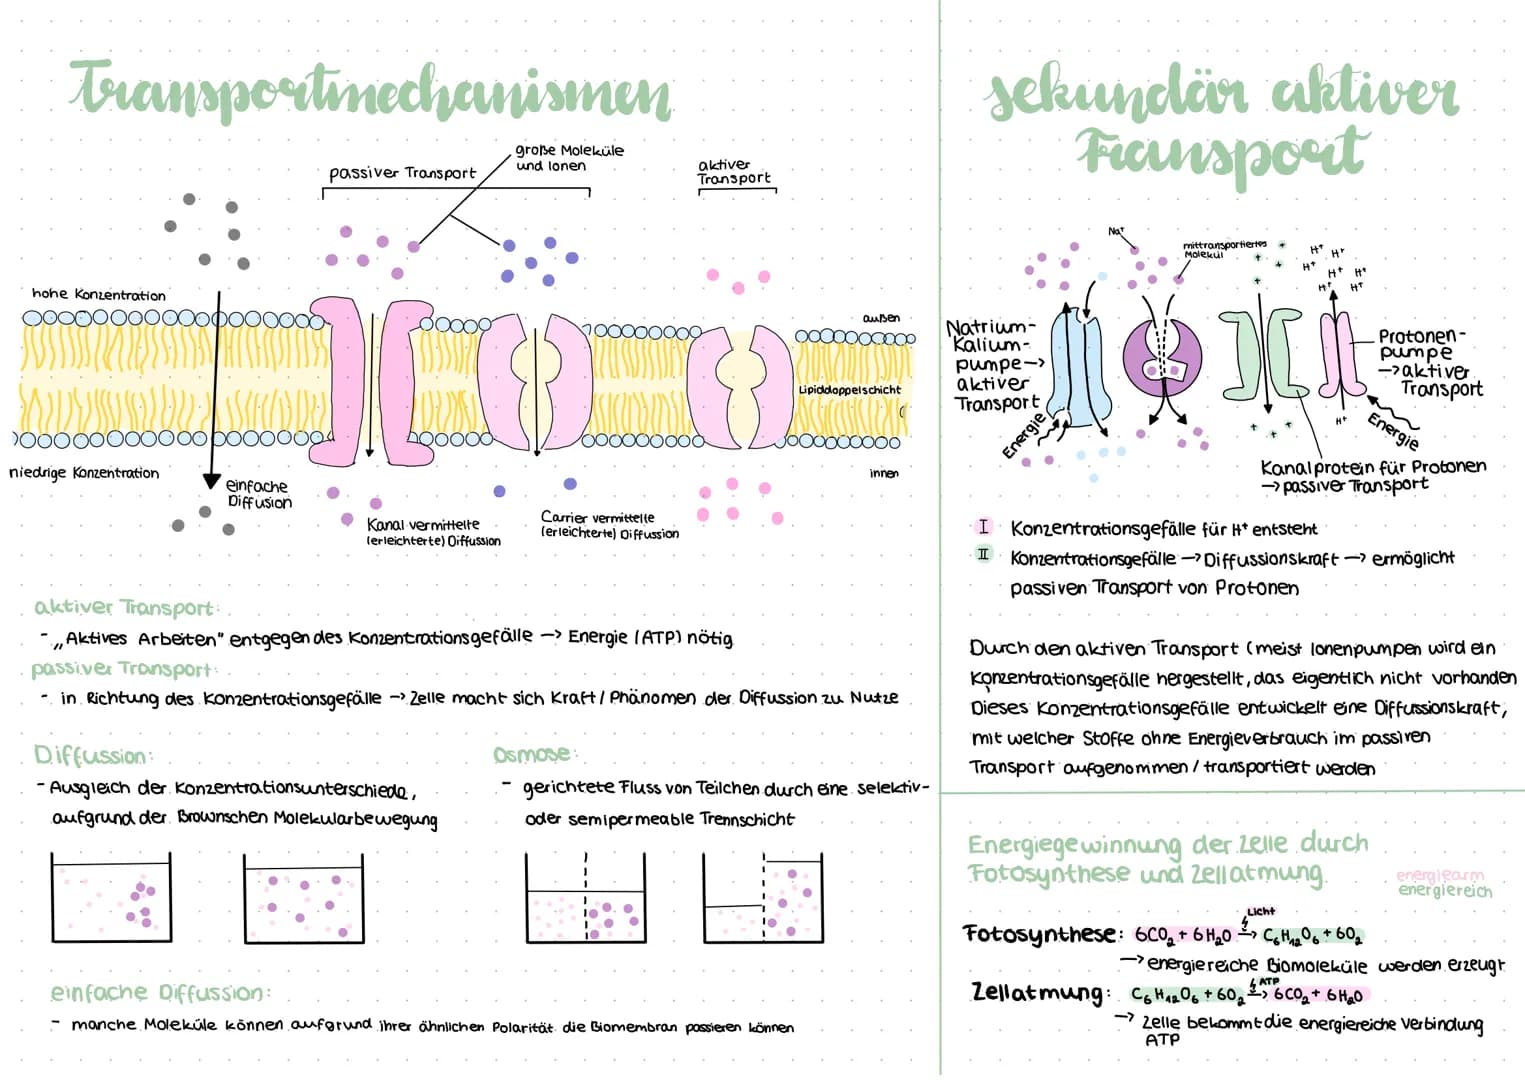 Transportmechanismen
große Moleküle
und Ionen
passiver Transport
aktiver
Transport
hohe Konzentration
außen
Lipiddoppelschicht
niedrige Konzentration
innen
einfache
Diffusion
Kanal vermittelte
(erleichterte) Diffussion
Carrier vermittelte
(erleichterte) Diffussion
aktiver Transport:
- „Aktives Arbeiten" entgegen des Konzentrationsgefälle -> Energie (ATP) nötig
passiver Transport:
- in Richtung des Konzentrationsgefälle -> Zelle macht sich Kraft / Phänomen der Diffussion zu Nutze
Diffussion:
- Ausgleich der Konzentrationsunterschiede,
aufgrund der Brownschen Molekularbewegung
Osmose:
- gerichtete Fluss von Teilchen durch eine selektiv-
oder semipermeable Trennschicht
einfache Diffussion:
- manche Moleküle können aufgrund ihrer ähnlichen Polarität die Biomembran passieren können
sekundär aktiver
Transport
Na⁺
mittransportiertes
Molekül
H⁺ H⁺
H⁺ H⁺ H⁺
H⁺ H⁺
Natrium-
Kalium-
pumpe ->
aktiver
Transport
Energie
Protonen-
pumpe
-> aktiver
Transport
H⁺
Energie
Kanalprotein für Protonen
-> passiver Transport
I Konzentrationsgefälle für H⁺ entsteht
II Konzentrationsgefälle -> Diffussionskraft -> ermöglicht
passiven Transport von Protonen
Durch den aktiven Transport (meist Ionenpumpen wird ein
Konzentrationsgefälle hergestellt, das eigentlich nicht vorhanden
Dieses Konzentrationsgefälle entwickelt eine Diffussionskraft,
mit welcher Stoffe ohne Energieverbrauch im passiven
Transport aufgenommen / transportiert werden
Energiegewinnung der Zelle durch
Fotosynthese und Zellatmung
energiearm
energiereich
Licht
Fotosynthese: 6CO₂ + 6H₂O -> C₆H₁₂O₆ + 6O₂
-> energiereiche Biomoleküle werden erzeugt
ATP
Zellatmung: C₆H₁₂O₆ + 6O₂ -> 6CO₂ + 6H₂O
-> Zelle bekommt die energiereiche Verbindung
ATP